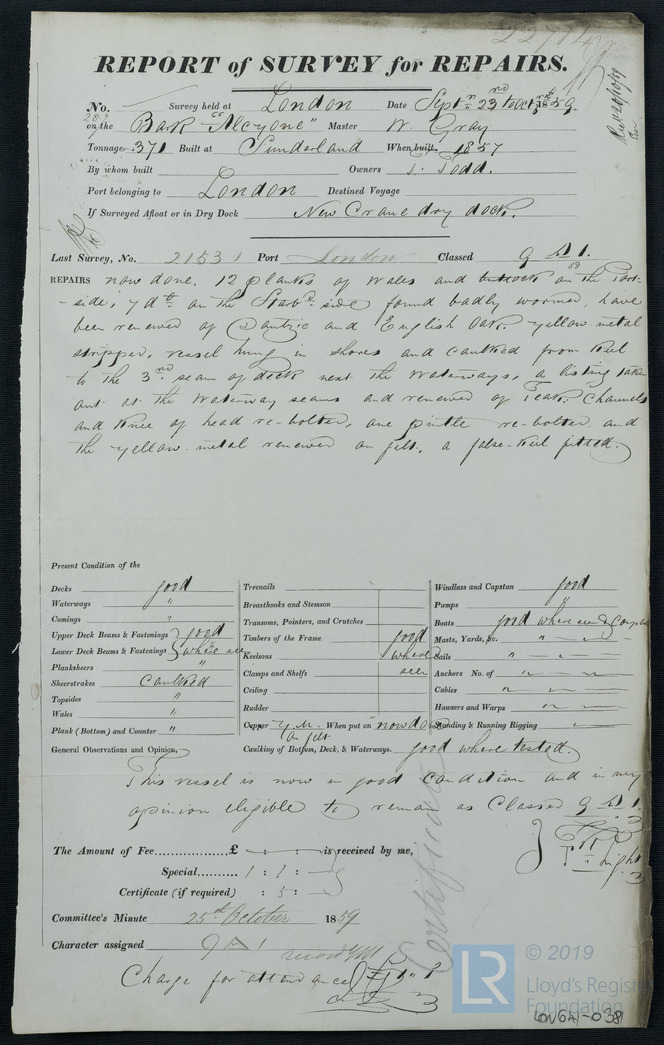 REPORT of SURVEY for REPAIRS.
No. Survey held at London Date Septr. 23rd to Oct 1859
on the Bark "Alcyone" Master W. Gray
Tonnage 371 Built at Sunderland When built 1857
By whom built Owners T. Todd.
Port belonging to London Destined Voyage
If Surveyed Afloat or in Dry Dock New Crane dry dock.
Last Survey, No. 21531 Port London Classed 9 A 1.
REPAIRS now done. 12 planks of Wales and on the Port-
-side, 7 dtto on the Starbd side found badly wormed, have
been renewed of Dantzic and English Oak. Yellow metal
stripped, vessel hung in shores and caulked from keel
to the 3rd seam of deck next the Waterways, a listing taken
out at the Waterway seams and renewed of Teak. Channels
and Knee of head re-bolted, one pintle re-bolted and
the yellow metal renewed on felt, a false-keel fitted.
Present Condition of the
Decks good
Waterways "
Comings "
Upper Deck Beams & Fastenings } good
Lower Deck Beams & Fastenings } where seen
Planksheers "
Sheerstrakes Caulked
Topsides "
Wales "
Plank (Bottom) and Counter "
Treenails
Breasthooks and Stemson
Transoms, Pointers, and Crutches
Timbers of the Frame good
Keelsons where
Clamps and Shelfs seen
Ceiling
Rudder
Copper Y. M. When put on now done
on felt
Caulking of Bottom, Deck, & Waterways. good where tested.
Windlass and Capstan good
Pumps "
Boats good where seen &
Masts, Yards, &c. "
Sails "
Anchors No. of "
Cables "
Hawsers and Warps "
Standing & Running Rigging "
General Observations and Opinion,
This vessel is now in good Condition and in my
opinion eligible to remain as Classed 9 A 1.
The Amount of Fee £ is received by me,
Special 1 : 1 :
Certificate (if required) : 5 :
Committee's Minute 25th October 1859
Character assigned 9 A 1
Charge for attendance
Certificate
© 2019
LR Lloyd's Register
Foundation
LON641-038